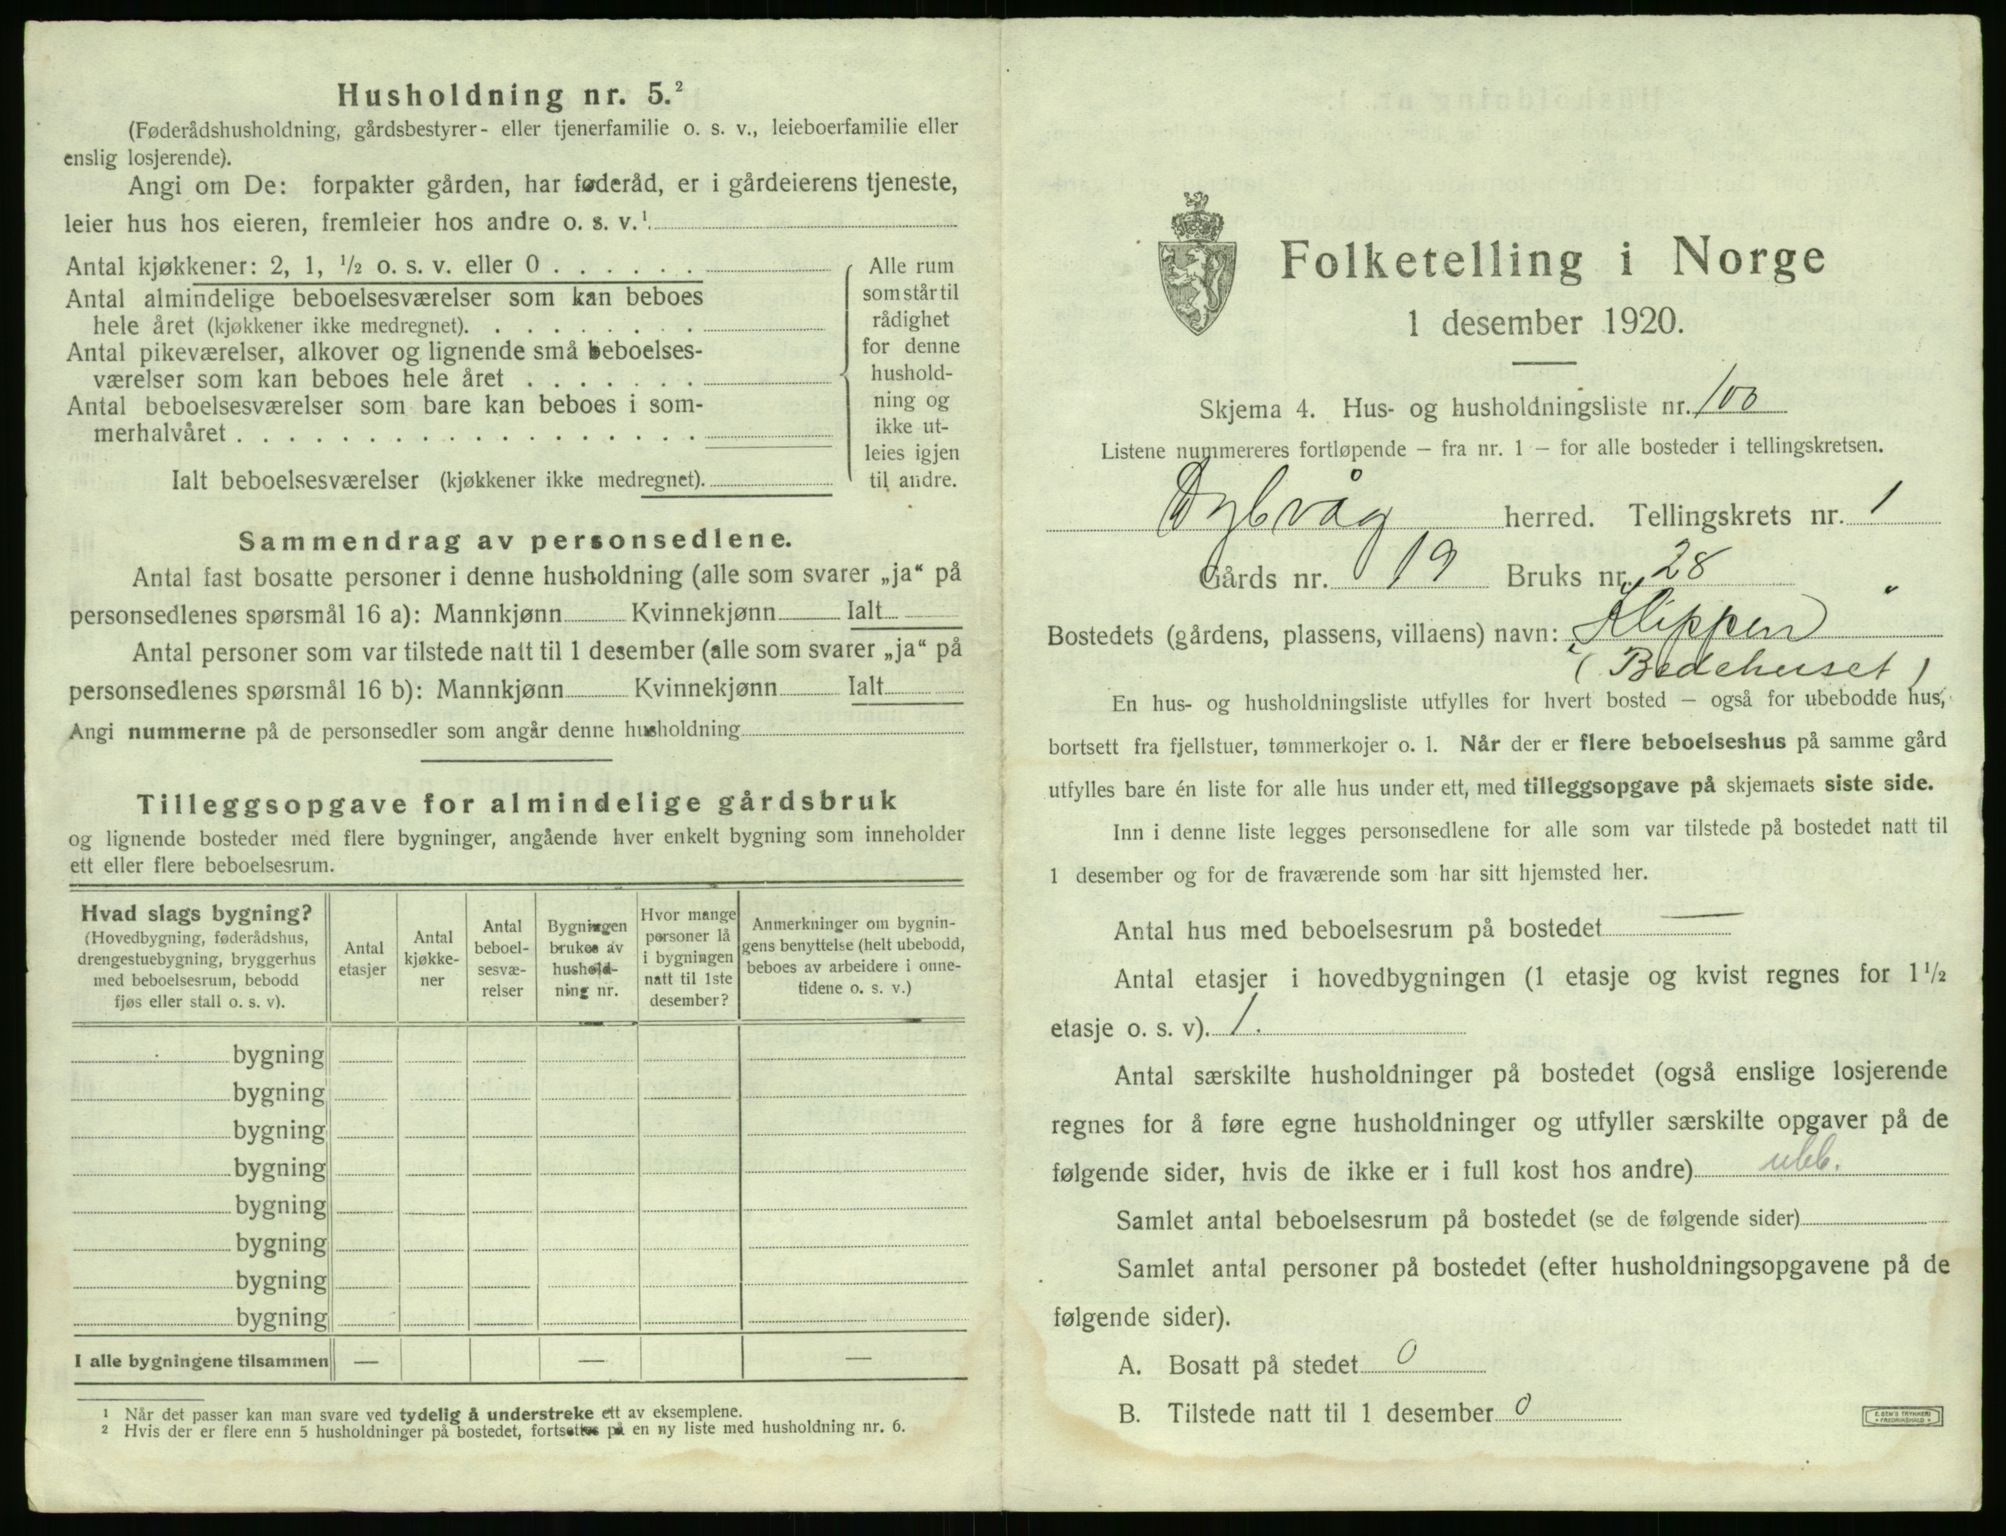 Husholdning nr. 5.²
(Føderådshusholdning, gårdsbestyrer- eller tjenerfamilie o. s. v., leieboerfamilie eller
enslig losjerende).
Angi om De: forpakter gården, har føderåd, er i gårdeierens tjeneste,
leier hus hos eieren, fremleier hos andre o. s. v.¹
Antal kjøkkener: 2, 1, ½ o. s. v. eller 0
Antal almindelige beboelsesværelser som kan beboes
hele året (kjøkkener ikke medregnet).
Antal pikeværelser, alkover og lignende små beboelses-
værelser som kan beboes hele året
Antal beboelsesværelser som bare kan beboes i som-
merhalvåret
Ialt beboelsesværelser (kjøkkener ikke medregnet).
Alle rum
som står til
rådighet
for denne
hushold-
ning og
ikke ut-
leies igjen
til andre.
Sammendrag av personsedlene.
Antal fast bosatte personer i denne husholdning (alle som svarer „ja“ på
personsedlenes spørsmål 16 a): Mannkjønn Kvinnekjønn Ialt
Antal personer som var tilstede natt til 1 desember (alle som svarer „ja“ på
personsedlenes spørsmål 16 b): Mannkjønn Kvinnekjønn Ialt
Angi nummerne på de personsedler som angår denne husholdning
Tilleggsopgave for almindelige gårdsbruk
og lignende bosteder med flere bygninger, angående hver enkelt bygning som inneholder
ett eller flere beboelsesrum.
Hvad slags bygning?
(Hovedbygning, føderådshus,
drengestuebygning, bryggerhus
med beboelsesrum, bebodd
fjøs eller stall o. s. v).
Antal
etasjer
Antal
kjøkke-
ner
Antal
beboel-
sesvæ-
relser
Bygningen
brukes av
hushold-
ning nr.
Hvor mange
personer lå
i bygningen
natt til 1ste
desember?
Anmerkninger om bygnin-
gens benyttelse (helt ubebodd,
beboes av arbeidere i onne-
tidene o. s. v.)
bygning
bygning
bygning
bygning
bygning
bygning
bygning
bygning
I alle bygningene tilsammen — — —
¹ Når det passer kan man svare ved tydelig å understreke ett av eksemplene.
² Hvis der er flere enn 5 husholdninger på bostedet, fortsettes på en ny liste med husholdning nr. 6.
Folketelling i Norge
1 desember 1920.
Skjema 4. Hus- og husholdningsliste nr. 100
Listene nummereres fortløpende – fra nr. 1 – for alle bosteder i tellingskretsen.
Dybvåg herred. Tellingskrets nr. 1
Gårds nr. 19 Bruks nr. 28
Bostedets (gårdens, plassens, villaens) navn: Klippen "
(Bedehuset)
En hus- og husholdningsliste utfylles for hvert bosted – også for ubebodde hus,
bortsett fra fjellstuer, tømmerkojer o. l. Når der er flere beboelseshus på samme gård
utfylles bare én liste for alle hus under ett, med tilleggsopgave på skjemaets siste side.
Inn i denne liste legges personsedlene for alle som var tilstede på bostedet natt til
1 desember og for de fraværende som har sitt hjemsted her.
Antal hus med beboelsesrum på bostedet —
Antal etasjer i hovedbygningen (1 etasje og kvist regnes for 1½
etasje o. s. v). 1.
Antal særskilte husholdninger på bostedet (også enslige losjerende
regnes for å føre egne husholdninger og utfyller særskilte opgaver på de
følgende sider, hvis de ikke er i full kost hos andre) ubb.
Samlet antal beboelsesrum på bostedet (se de følgende sider)
Samlet antal personer på bostedet (efter husholdningsopgavene på de
følgende sider).
A. Bosatt på stedet 0
B. Tilstede natt til 1 desember 0